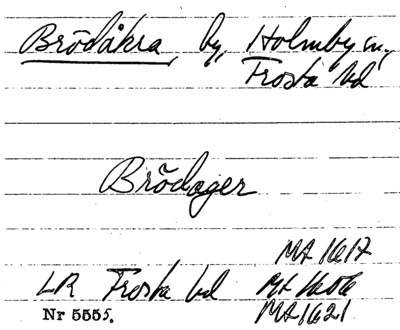 Brödåkra, by, Holmby sn,
Frosta hd
Brödager
MA 1617
LR Frosta hd MA 1606
Nr 5555. MA 1621